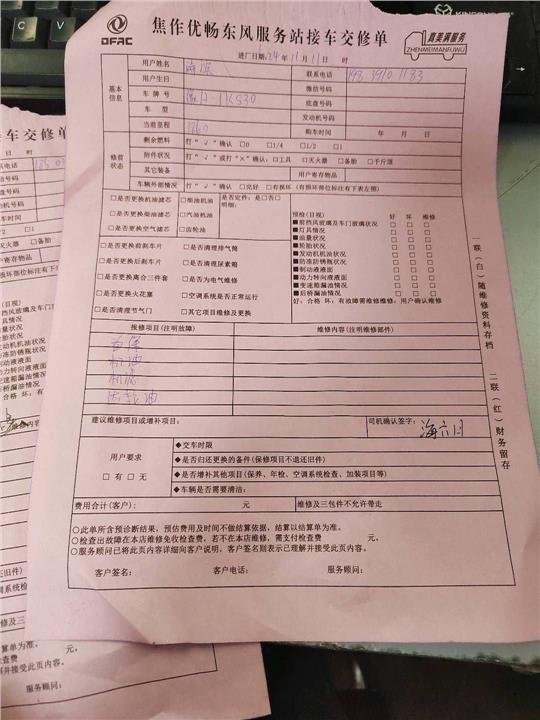 DFAC
焦作优畅东风服务站接车交修单
真美满服务
ZHENMEIMANFUWU
进厂日期:24年11月11日 时
基本信息
用户姓名 联系电话
用户生日 微信号码
车牌号 底盘号码
车型 发动机号码
当前里程 购车时间 年 月 日
修前状态
剩余燃料 打“√”确认 □0 □1/4 □1/2 □1
附件状况 打“√”或打“×”确认:□工具 □灭火器 □备胎 □千斤顶
其它装备 用户寄存物品
车辆外部情况 打“√”确认 □完好 □有损坏(有损坏部位标注有下表左图)
□是否更换机油滤芯 □柴油机油 是否定件:是□否□
□是否更换柴油滤芯 □汽油机油 明细:
□是否更换空气滤芯 □齿轮油
□是否更换前刹车片 □是否清理排气筒
□是否更换后刹车片 □是否清理尿素箱
□是否更换离合三件套 □是否为电气维修
□是否更换火花塞 □空调系统是否正常运行
□是否清理节气门 □其它项目维修及更换
预检(目视) 好 坏 维修
■前挡风玻璃及车门玻璃状况 □ □ □
■灯具情况 □ □ □
■油量状况 □ □ □
■轮胎状况 □ □ □
■发动机机油状况 □ □ □
■防冻防锈瓶状况 □ □ □
■制动液液面 □ □ □
■动力转向液液面 □ □ □
■变速箱漏油情况 □ □ □
■后桥漏油情况 □ □ □
好:合格 坏:有故障需维修维修:用户确认维修
报修项目(注明故障) 维修内容(注明维修部件)
机油
机滤
齿轮油
建议维修项目或增补项目: 司机确认签字:
用户要求
□有 □无
◆交车时限
◆是否归还更换的备件(保修项目不退还旧件)
◆是否增补其他项目(保养、年检、空调系统检查、加装项目等)
◆车辆是否需要清洁:
费用合计(客户): 元 维修及三包件不允许带走
○此单所含预诊断结果,预估费用及时间不做结算依据,结算以结算单为准。
○检查出故障在本店维修免收检查费,若不在本店维修,需支付检查费 元。
○服务顾问已将此页内容详细向客户说明,客户签名则表示已理解并接受此页内容。
客户签名: 客户电话: 服务顾问:
一联(白)随维修资料存档
二联(红)财务留存
接车交修单
日 时
系电话
信号码
盘号码
动机号码
车时间
灭火器 □备胎
户寄存物品
损坏部位标注有
检(目视)
状况
系统检
维修及三
结算单为准。
查费 元。
并接受此页内容。
服务顾问: